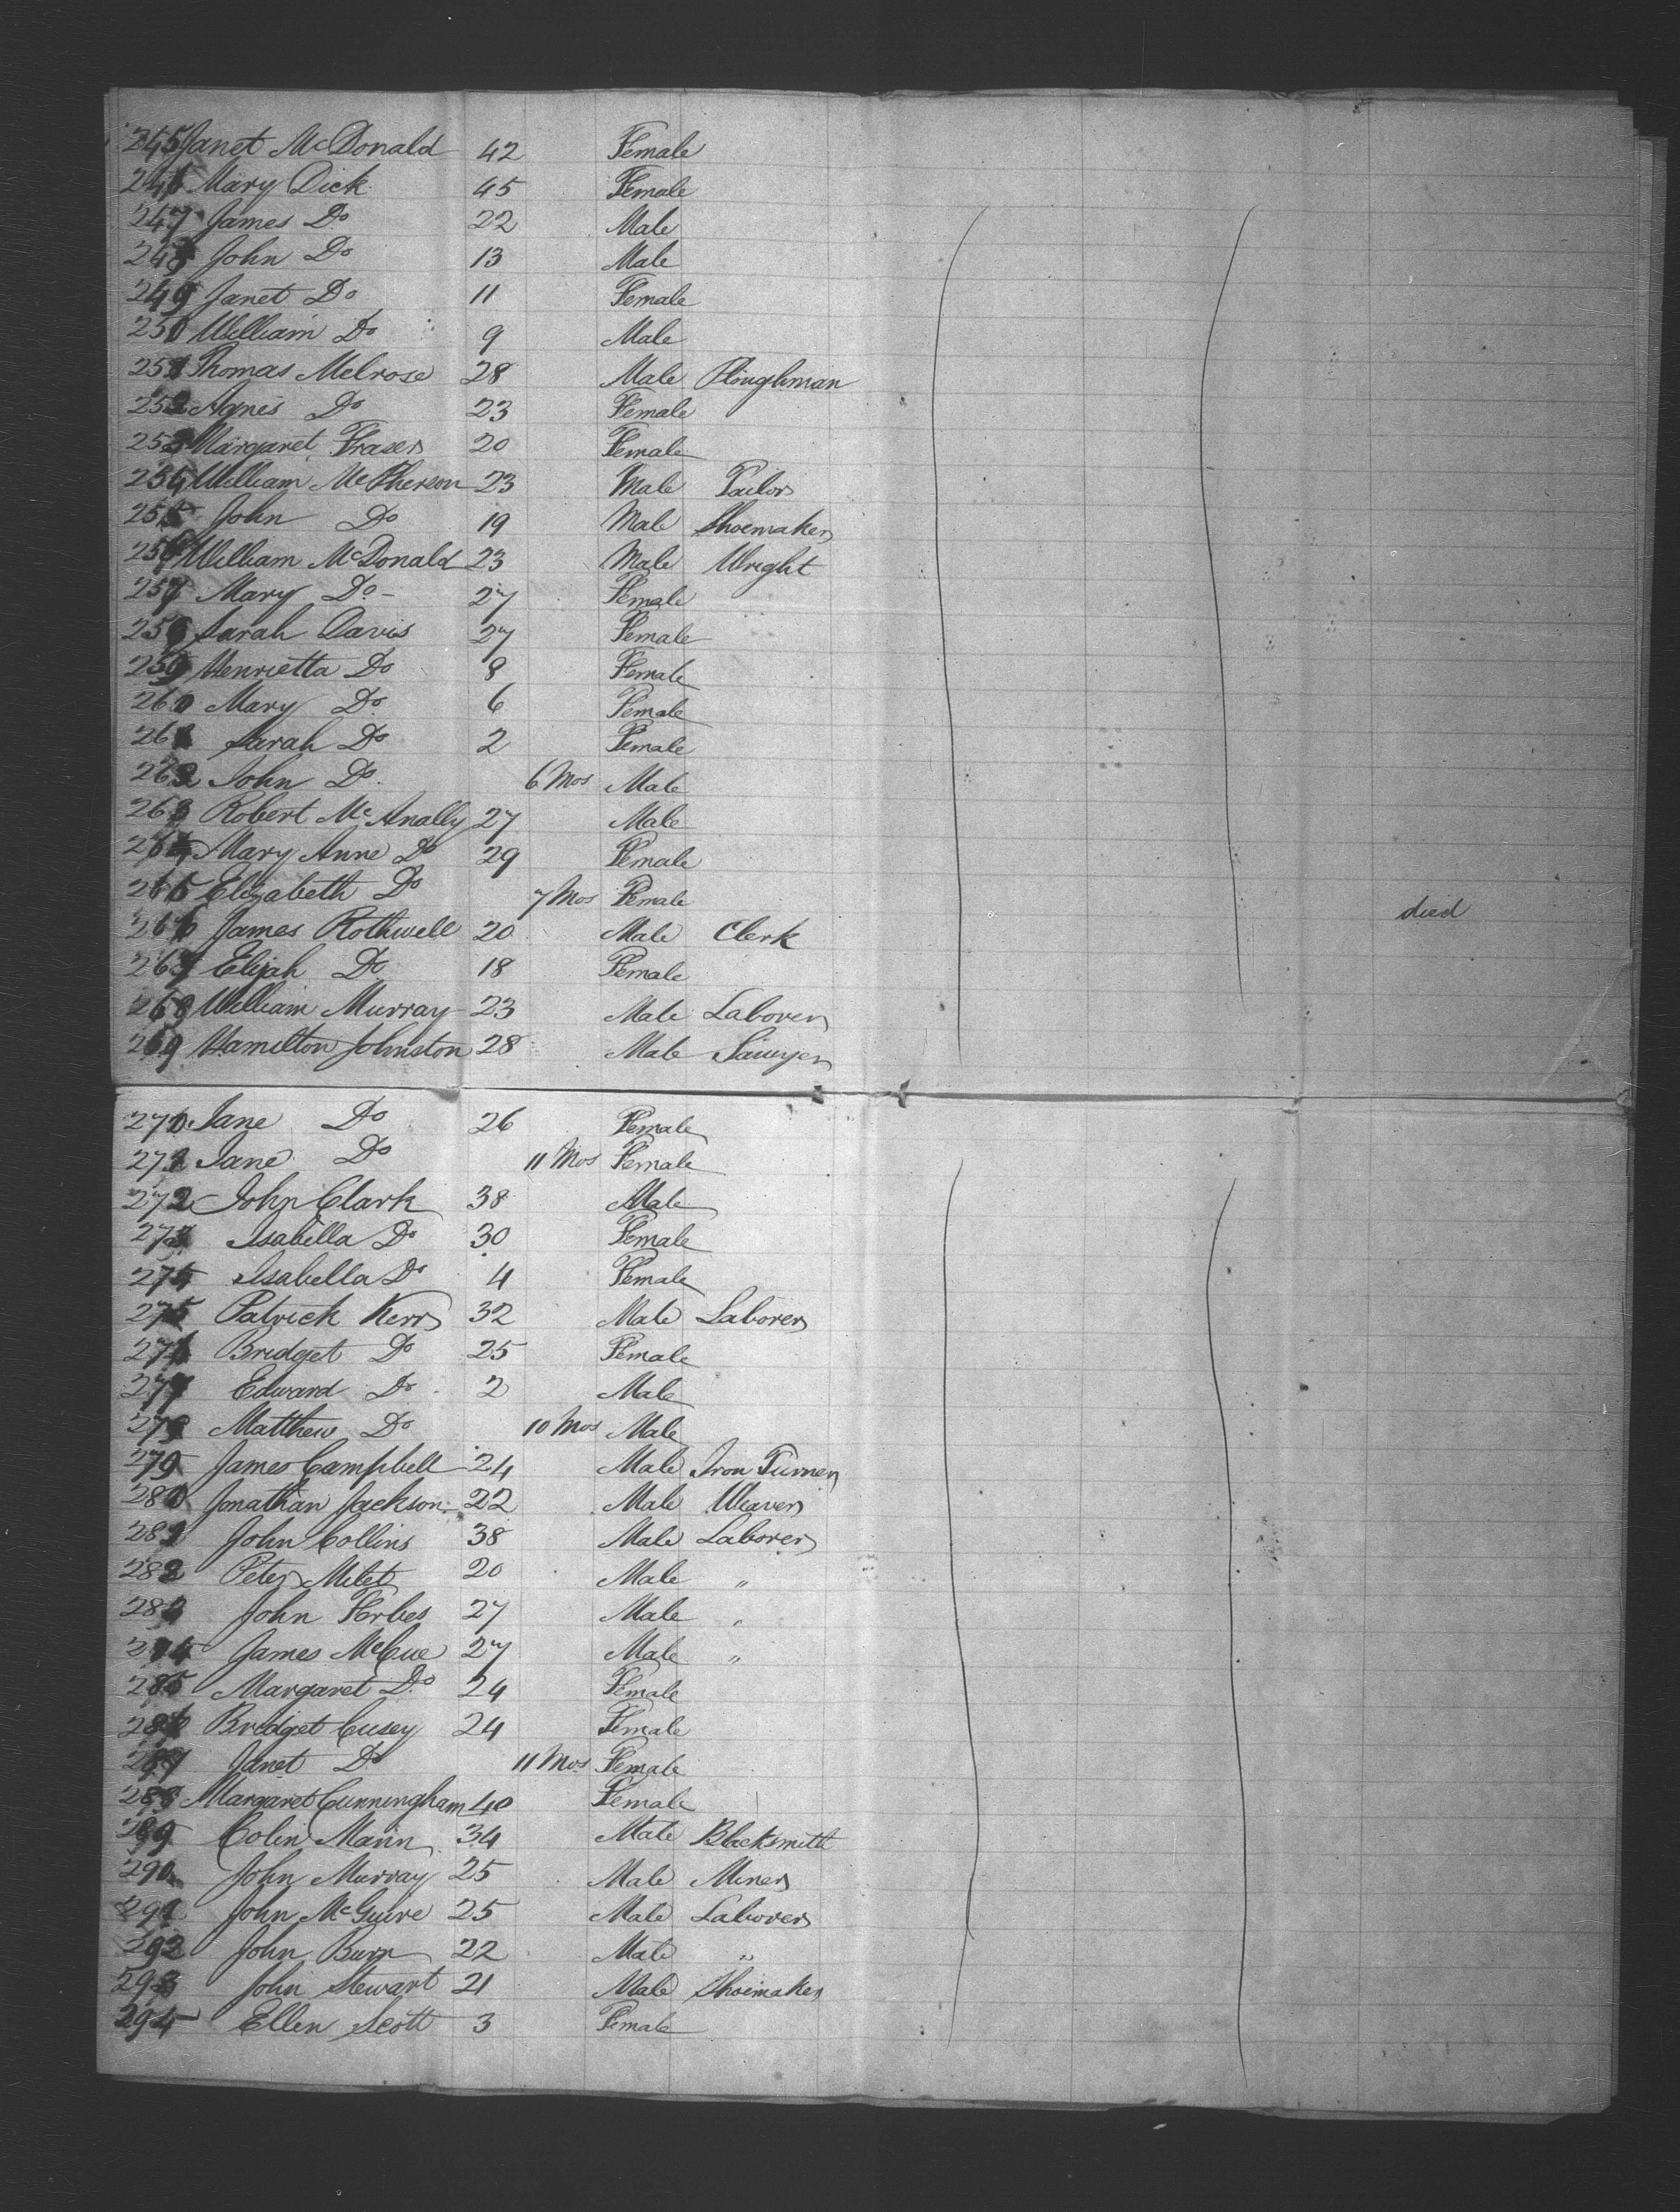 245 Janet McDonald 42 Female
246 Mary Dick 45 Female
247 James Do 22 Male
248 John Do 13 Male
249 Janet Do 11 Female
250 William Do 9 Male
251 Thomas Melrose 28 Male Ploughman
252 Agnes Do 23 Female
253 Margaret Fraser 20 Female
254 William McPherson 23 Male Tailor
255 John Do 19 Male Shoemaker
256 William McDonald 23 Male Wright
257 Mary Do - 27 Female
258 Sarah Davis 27 Female
259 Henrietta Do 8 Female
260 Mary Do 6 Female
261 Sarah Do 2 Female
262 John Do 6 Mos Male
263 Robert McAnally 27 Male
264 Mary Anne Do 29 Female
265 Elizabeth Do 7 Mos Female died
266 James Rothwell 20 Male Clerk
267 Elijah Do 18 Female
268 William Murray 23 Male Laborer
269 Hamilton Johnston 28 Male Sawyer
270 Jane Do 26 Female
271 Jane Do 11 Mos Female
272 John Clark 38 Male
273 Isabella Do 30 Female
274 Isabella Do 4 Female
275 Patrick Kerr 32 Male Laborer
276 Bridget Do 25 Female
277 Edward Do 2 Male
278 Matthew Do 10 Mos Male
279 James Campbell 24 Male Iron Turner
280 Jonathan Jackson 22 Male Weaver
281 John Collins 38 Male Laborer
282 Peter 20 Male "
283 John Forbes 27 Male "
284 James McCue 27 Male "
285 Margaret Do 24 Female
286 Bridget Cusey 24 Female
287 Janet Do 11 Mos Female
288 Margaret Cunningham 40 Female
289 Colin Mann 34 Male Blacksmith
290 John Murray 25 Male Miner
291 John McGuire 25 Male Laborer
292 John Burn 22 Male "
293 John Stewart 21 Male Shoemaker
294 Ellen Scott 3 Female